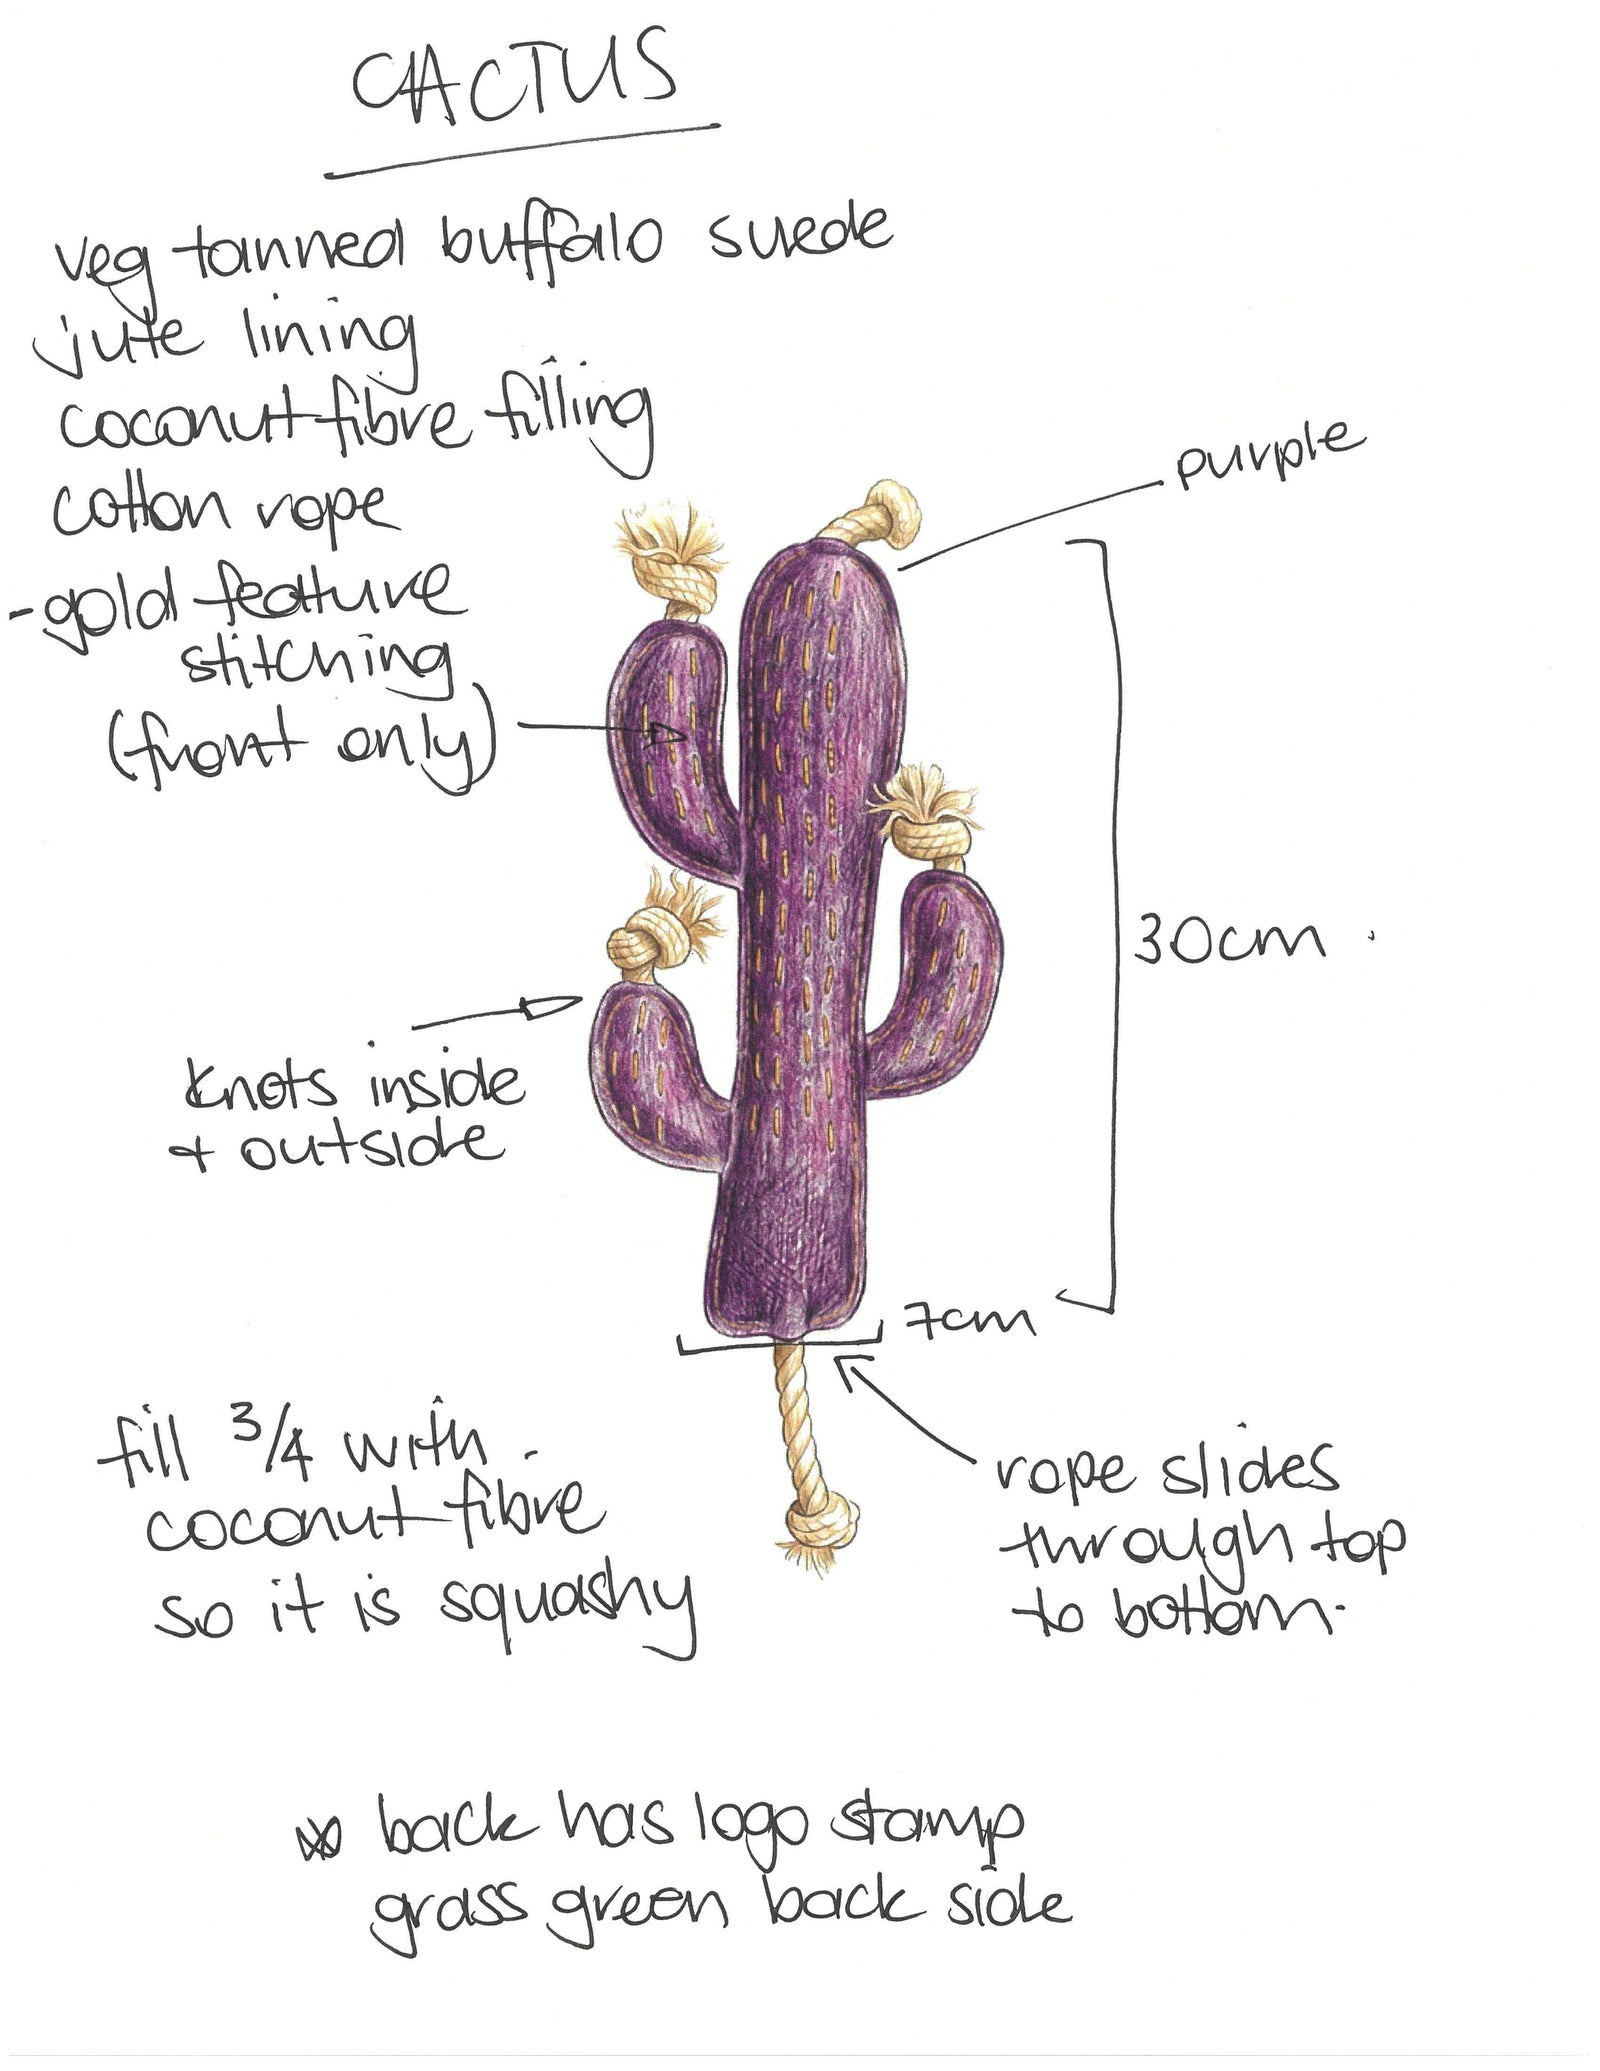 CACTUS
veg tanned buffalo suede
jute lining
coconut fibre filling
cotton rope
-gold feature
stitching
(front only)
purple
30cm
knots inside
+ outside
7cm
fill 3/4 with
coconut fibre
so it is squashy
rope slides
through top
to bottom.
back has logo stamp
grass green back side